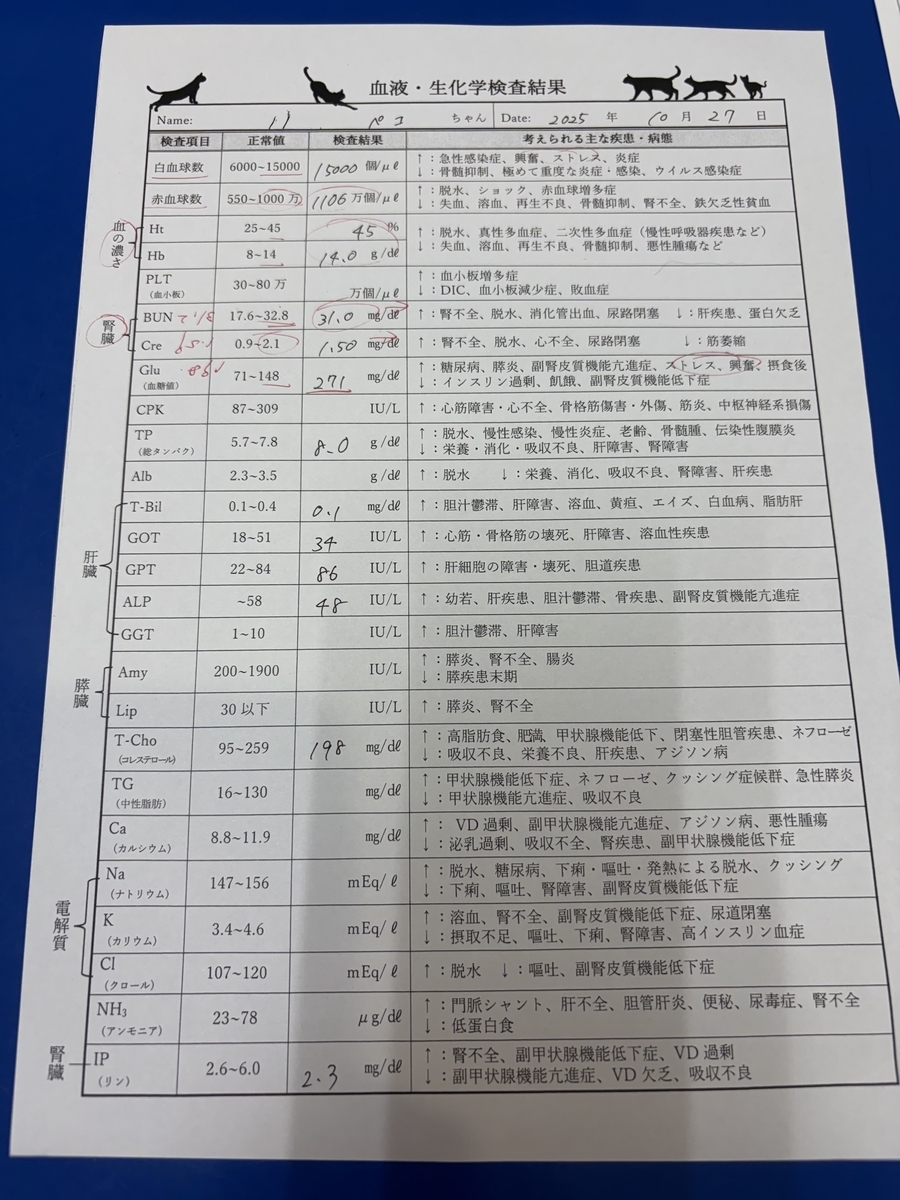 血液・生化学検査結果
Name: ペコ ちゃん Date: 2025 年 10 月 27 日
検査項目 正常値 検査結果 考えられる主な疾患・病態
白血球数 6000~15000 15000 個/μℓ ↑：急性感染症、興奮、ストレス、炎症
↓：骨髄抑制、極めて重度な炎症・感染、ウイルス感染症
赤血球数 550~1000万 1106 万個/μℓ ↑：脱水、ショック、赤血球増多症
↓：失血、溶血、再生不良、骨髄抑制、腎不全、鉄欠乏性貧血
血の濃さ
Ht 25~45 45 % ↑：脱水、真性多血症、二次性多血症（慢性呼吸器疾患など）
Hb 8~14 14.0 g/dℓ ↓：失血、溶血、再生不良、骨髄抑制、悪性腫瘍など
PLT 30~80万 万個/μℓ ↑：血小板増多症
（血小板） ↓：DIC、血小板減少症、敗血症
腎臓
BUN 17.6~32.8 31.0 mg/dℓ ↑：腎不全、脱水、消化管出血、尿路閉塞 ↓：肝疾患、蛋白欠乏
Cre 0.9~2.1 1.50 mg/dℓ ↑：腎不全、脱水、心不全、尿路閉塞 ↓：筋萎縮
Glu 71~148 271 mg/dℓ ↑：糖尿病、膵炎、副腎皮質機能亢進症、ストレス、興奮、摂食後
（血糖値） ↓：インスリン過剰、飢餓、副腎皮質機能低下症
CPK 87~309 IU/L ↑：心筋障害・心不全、骨格筋傷害・外傷、筋炎、中枢神経系損傷
TP 5.7~7.8 8.0 g/dℓ ↑：脱水、慢性感染、慢性炎症、老齢、骨髄腫、伝染性腹膜炎
（総タンパク） ↓：栄養・消化・吸収不良、肝障害、腎障害
Alb 2.3~3.5 g/dℓ ↑：脱水 ↓：栄養、消化、吸収不良、腎障害、肝疾患
肝臓
T-Bil 0.1~0.4 0.1 mg/dℓ ↑：胆汁鬱滞、肝障害、溶血、黄疸、エイズ、白血病、脂肪肝
GOT 18~51 34 IU/L ↑：心筋・骨格筋の壊死、肝障害、溶血性疾患
GPT 22~84 86 IU/L ↑：肝細胞の障害・壊死、胆道疾患
ALP ~58 48 IU/L ↑：幼若、肝疾患、胆汁鬱滞、骨疾患、副腎皮質機能亢進症
GGT 1~10 IU/L ↑：胆汁鬱滞、肝障害
膵臓
Amy 200~1900 IU/L ↑：膵炎、腎不全、腸炎
↓：膵疾患末期
Lip 30 以下 IU/L ↑：膵炎、腎不全
T-Cho 95~259 198 mg/dℓ ↑：高脂肪食、肥満、甲状腺機能低下、閉塞性胆管疾患、ネフローゼ
（コレステロール） ↓：吸収不良、栄養不良、肝疾患、アジソン病
TG 16~130 mg/dℓ ↑：甲状腺機能低下症、ネフローゼ、クッシング症候群、急性膵炎
（中性脂肪） ↓：甲状腺機能亢進症、吸収不良
Ca 8.8~11.9 mg/dℓ ↑： VD 過剰、副甲状腺機能亢進症、アジソン病、悪性腫瘍
（カルシウム） ↓：泌乳過剰、吸収不全、腎疾患、副甲状腺機能低下症
電解質
Na 147~156 mEq/ℓ ↑：脱水、糖尿病、下痢・嘔吐・発熱による脱水、クッシング
（ナトリウム） ↓：下痢、嘔吐、腎障害、副腎皮質機能低下症
K 3.4~4.6 mEq/ℓ ↑：溶血、腎不全、副腎皮質機能低下症、尿道閉塞
（カリウム） ↓：摂取不足、嘔吐、下痢、腎障害、高インスリン血症
Cl 107~120 mEq/ℓ ↑：脱水 ↓：嘔吐、副腎皮質機能低下症
（クロール）
NH₃ 23~78 μg/dℓ ↑：門脈シャント、肝不全、胆管肝炎、便秘、尿毒症、腎不全
（アンモニア） ↓：低蛋白食
腎臓
IP 2.6~6.0 2.3 mg/dℓ ↑：腎不全、副甲状腺機能低下症、VD 過剰
（リン） ↓：副甲状腺機能亢進症、VD 欠乏、吸収不良